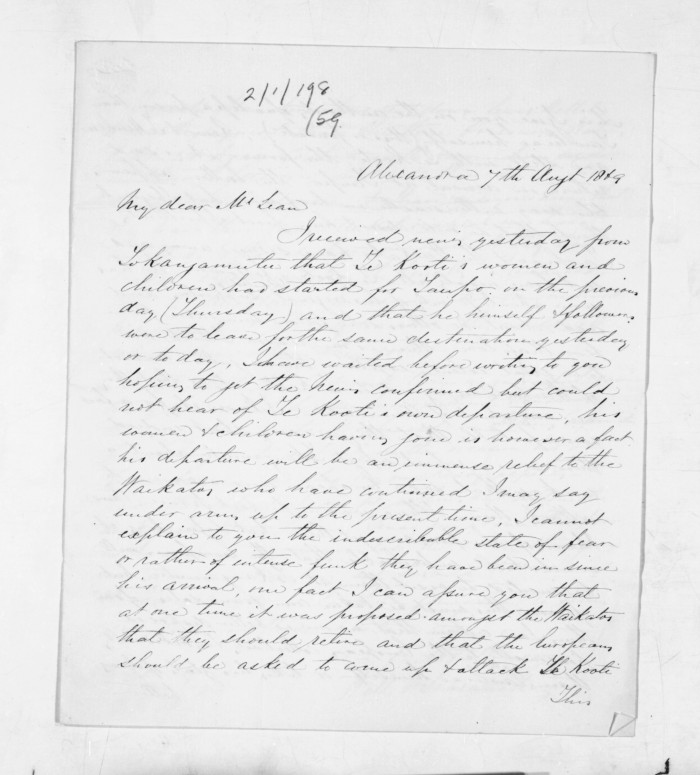 2/1/198
(59.
Alexandra 7th Augt 1869
My dear McLean
I received news yesterday from
Tokangamutu that Te Kooti's women and
children had started for Taupo on the previous
day (Thursday) and that he himself & followers
were to leave for the same destination yesterday
or to day, I have waited before writing to you
hoping to get the news confirmed but could
not hear of Te Kooti's own departure, his
women & children having gone is however a fact
his departure will be an immense relief to the
Waikatos who have continued I may say
under arms up to the present time, I cannot
explain to you the indescribable state of fear
or rather of intense funk they have been in since
his arrival, one fact I can assure you that
at one time it was proposed amongst the Waikatos
that they should retire and that the Europeans
should be asked to come up & attack Te Kooti
This